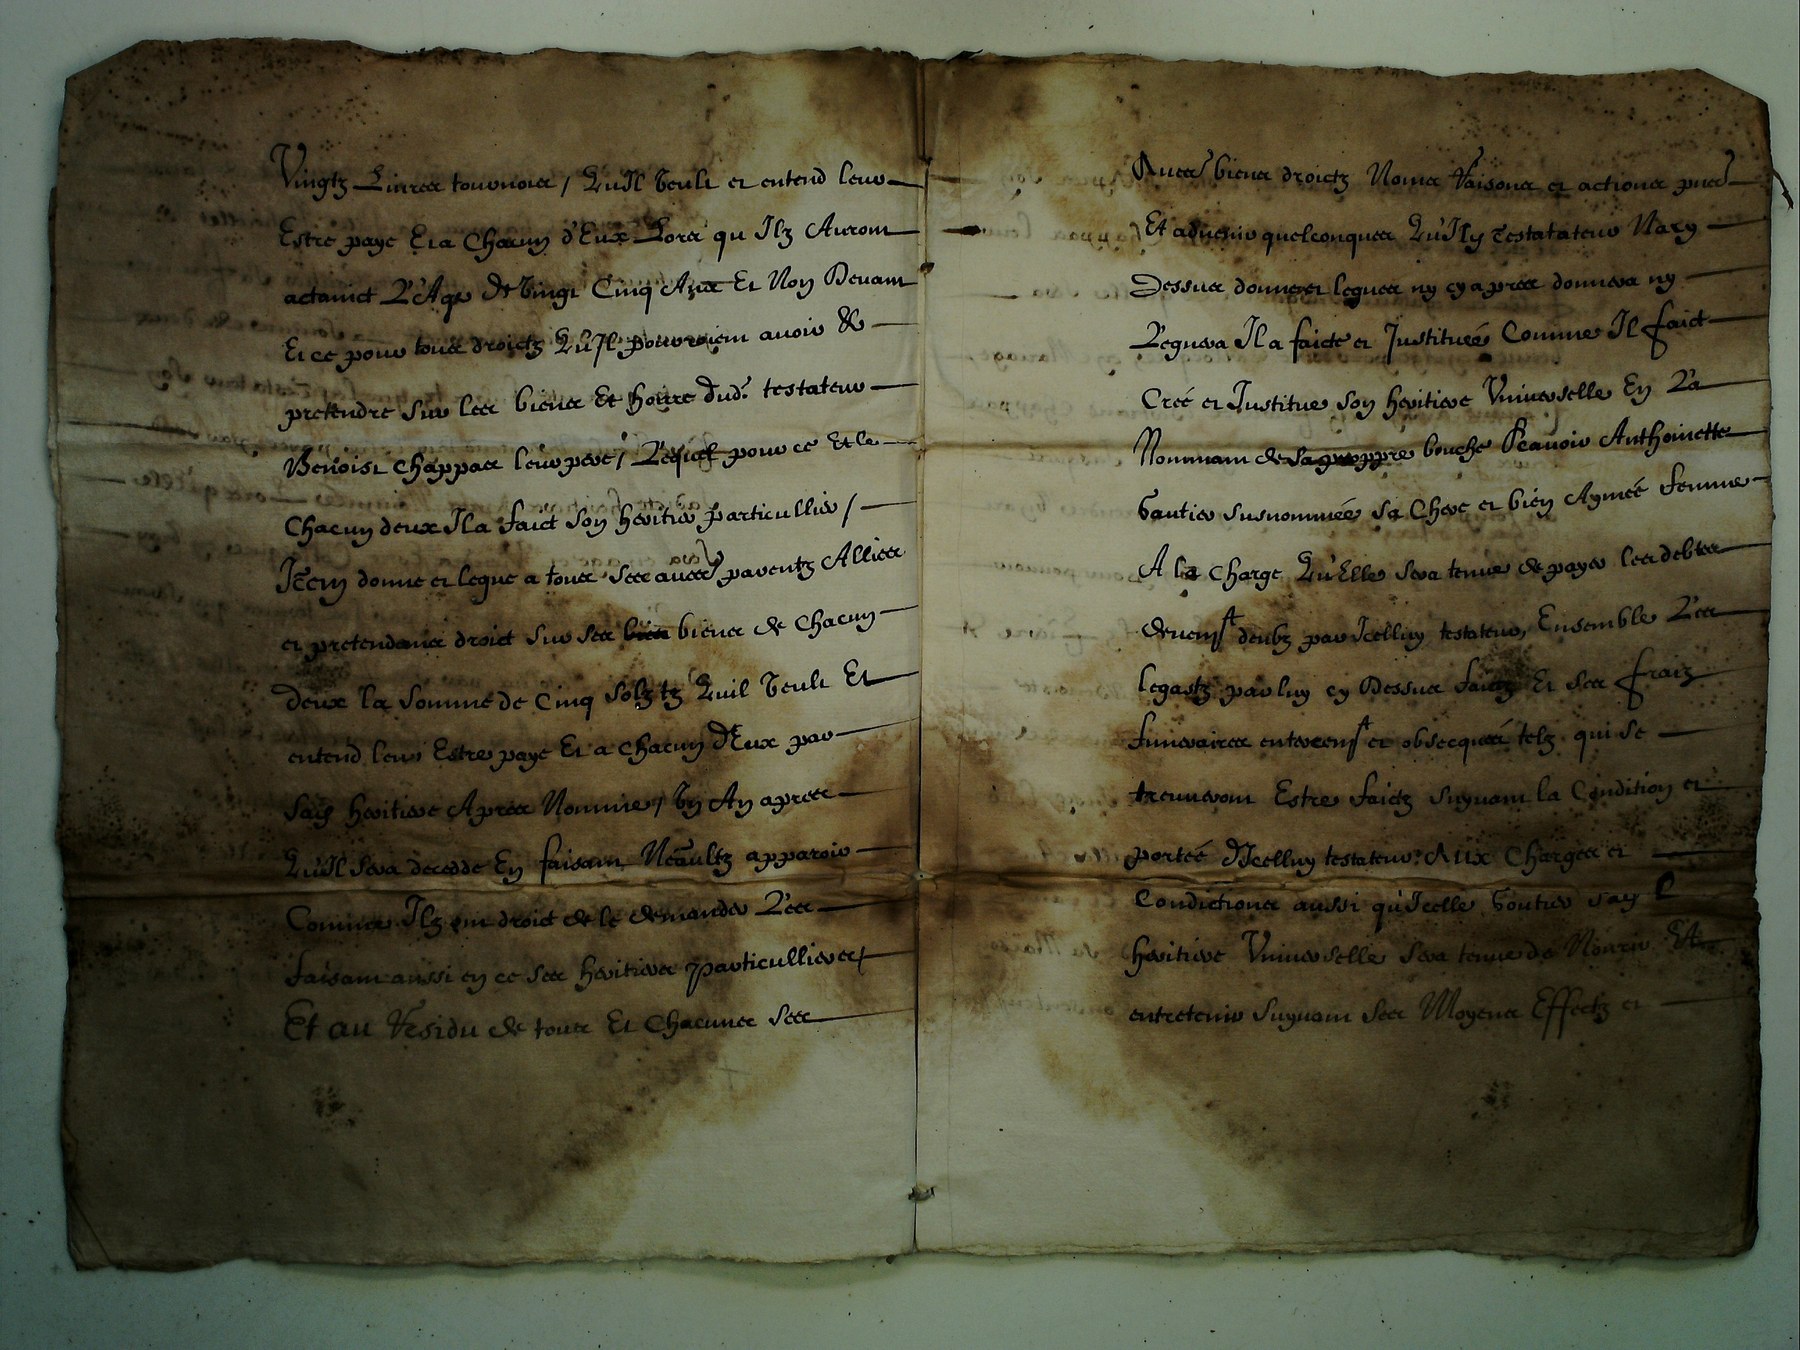 Vingtz Livres tournois / Qu'Il Veult et entend leur
Estre paye Et a Chacun d'Eux Lors qu Ilz Auront
actainct L'Age De Vingt Cinq Ans Et Non Devant
Et ce pour tous droictz Qu'Il pourroient avoir &
pretendre Sur les biens Et hoirie dud. testateur
Benoist Chappas leur pere / Lequel pour ce Et le
Chacun deux Il a faict Son heritier particullier /
Item donne et legue a tous ses aues parentz Allies
et pretendans droict Sur ses biens de Chacun
deux la Somme de Cinq Solz tz Quil Veult Et
entend leur Estre paye Et a Chacun d'Eux par
Sad heritiere Apres Nommee / Un An apres
Qu'Il Sera decedde En faisant Neaultz apparoir
Comme Ilz ont droict de le demander Les
faisant aussi en ce Ses heritiers particulliers /
Et au Residu de tous Et Chacuns Ses
Aues biens droictz Noms Raisons et actions pnes
Et advenir quelconques Qu'Ily Testatateur Na cy
Dessus donne et legues ny cy apres donnera ny
Leguera Il a faicte et Instituée Comme Il faict
Creé et Institue Son heritiere Universelle En La
Nommant de Sa proppre bouche Scavoir Anthoinette
Gautier Susnommée Sa Chere et bien Aymeé femme
A la Charge Qu'Elle Sera tenue de payer les debtes
deuemt deubz par Icelluy testateur, Ensemble Les
legaatz par luy cy Dessus faictz Et Ses fraiz
funeraires enteremt et obsecques telz qui Se
treuveront Estre faictz Suyvant la Condition et
porteé d'Icelluy testateur: Aux Charges et
Condictions aussi qu'Icelle Gautier
heritiere Universelle Sera tenue de Norrir Et
entretenir Suyvant Ses Moyens Effectz et